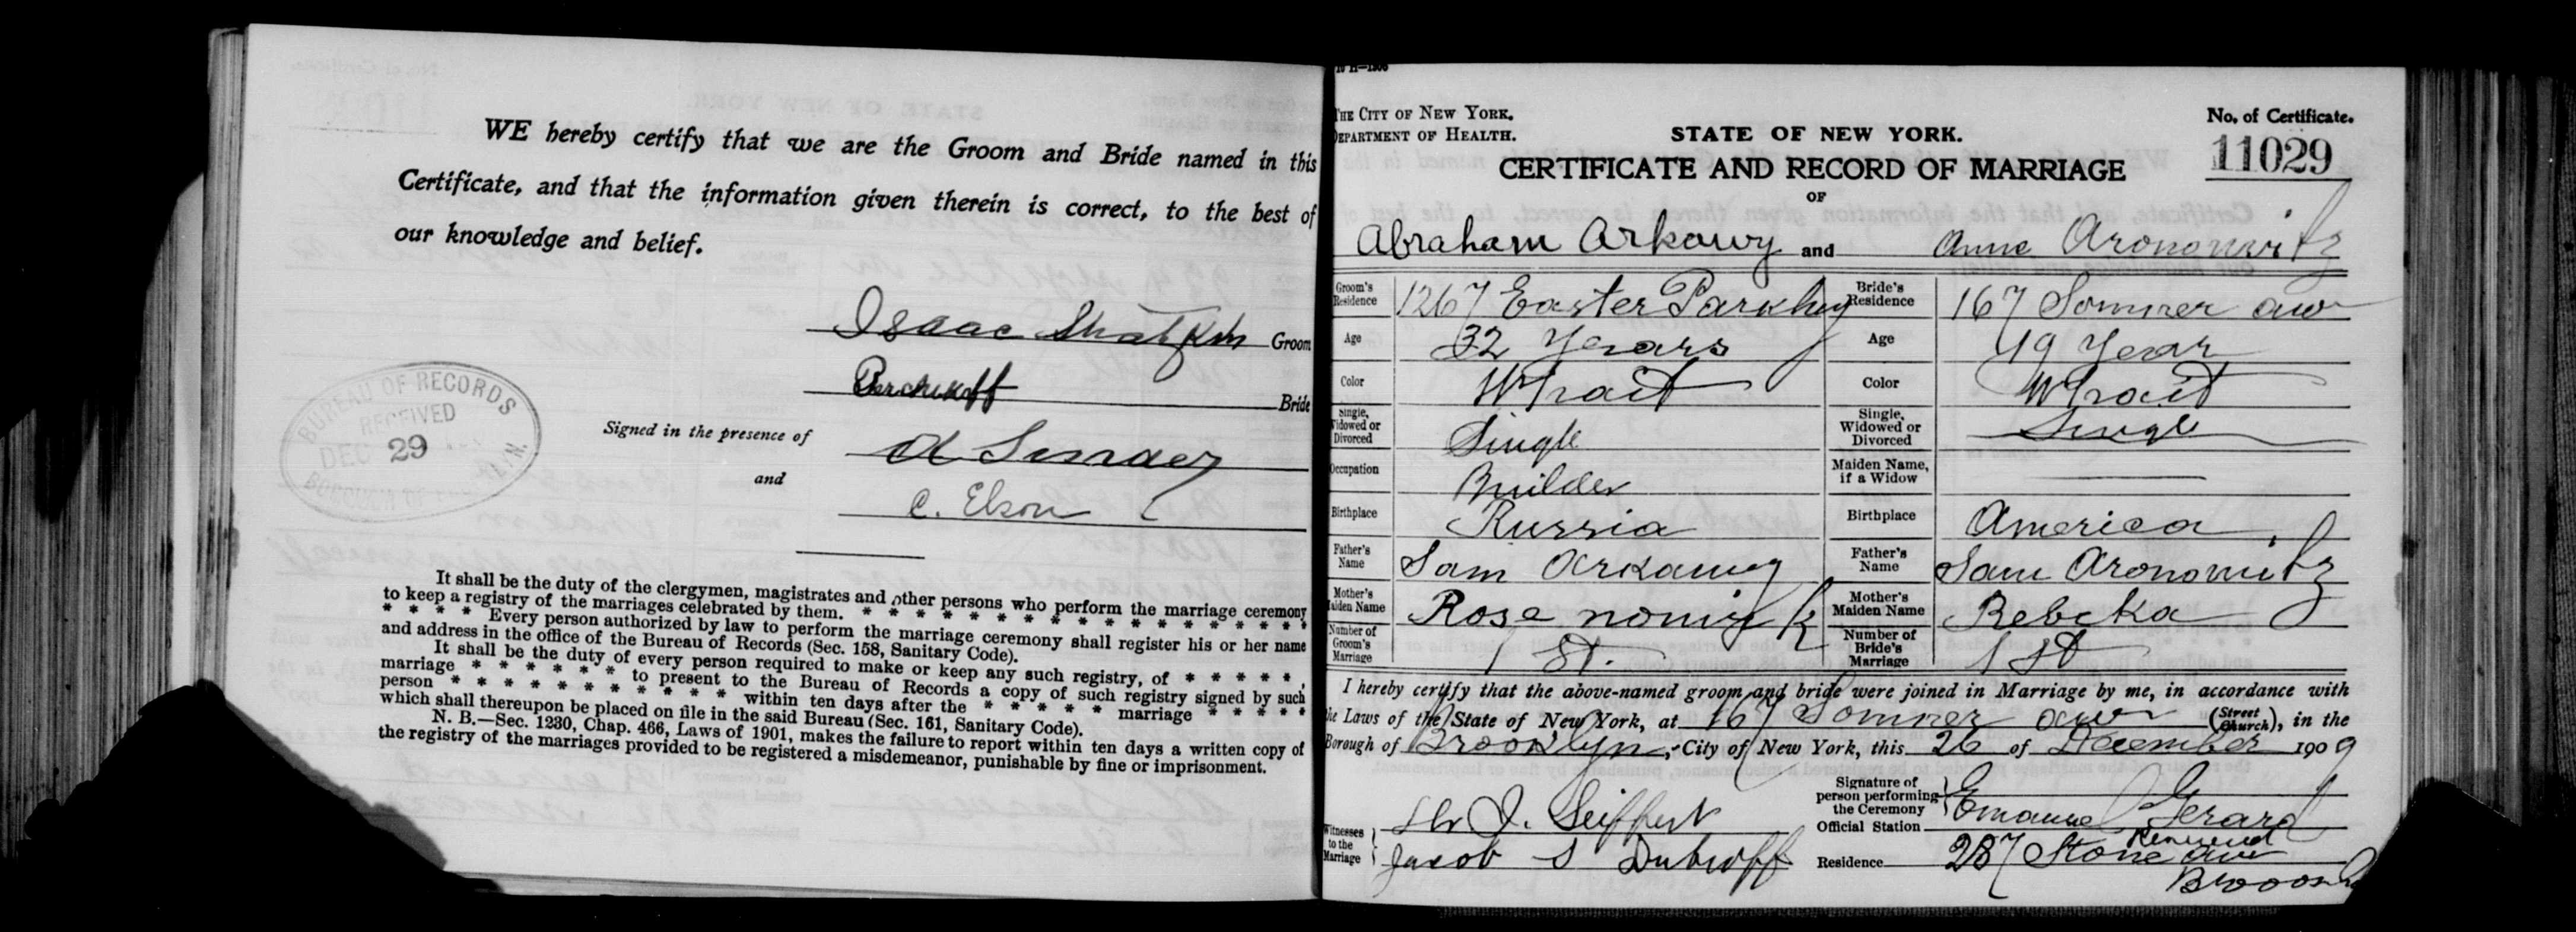 WE hereby certify that we are the Groom and Bride named in this
Certificate, and that the information given therein is correct, to the best of
our knowledge and belief.
Isaac Groom
Bride
Signed in the presence of
and
C. Elson
BUREAU OF RECORDS
RECEIVED
DEC 29
BOROUGH OF BROOKLYN
It shall be the duty of the clergymen, magistrates and other persons who perform the marriage ceremony
to keep a registry of the marriages celebrated by them. * * * * * * * * * * * * * * * * *
* * * * Every person authorized by law to perform the marriage ceremony shall register his or her name
and address in the office of the Bureau of Records (Sec. 158, Sanitary Code).
It shall be the duty of every person required to make or keep any such registry, of * * * * *
marriage * * * * * * to present to the Bureau of Records a copy of such registry signed by such
person * * * * * * * * * * * within ten days after the * * * * * marriage * * * * *
which shall thereupon be placed on file in the said Bureau (Sec. 161, Sanitary Code).
N. B.—Sec. 1230, Chap. 466, Laws of 1901, makes the failure to report within ten days a written copy of
the registry of the marriages provided to be registered a misdemeanor, punishable by fine or imprisonment.
THE CITY OF NEW YORK.
DEPARTMENT OF HEALTH.
STATE OF NEW YORK.
No. of Certificate.
11029
CERTIFICATE AND RECORD OF MARRIAGE
OF
Abraham Arkawy and Anne Aronowitz
Groom's Residence 1267 Easter Parkway Bride's Residence 167 Sommer aw
Age 32 Years Age 19 Year
Color Whait Color Whait
Single, Widowed or Divorced Single Single, Widowed or Divorced Single
Occupation Builder Maiden Name, if a Widow
Birthplace Russia Birthplace America
Father's Name Sam Arkawy Father's Name Sam Aronowitz
Mother's Maiden Name Rose Mother's Maiden Name Rebeka
Number of Groom's Marriage 1 St. Number of Bride's Marriage 1 St
I hereby certify that the above-named groom and bride were joined in Marriage by me, in accordance with
the Laws of the State of New York, at 167 Sommer aw (Street Church), in the
Borough of Brooklyn, City of New York, this 26 of December 1909
Witnesses to the Marriage J. Seiffert
Jacob S Dubroff
Signature of person performing the Ceremony Emanuel Gerard
Official Station Reverend
Residence 287 Stone aw